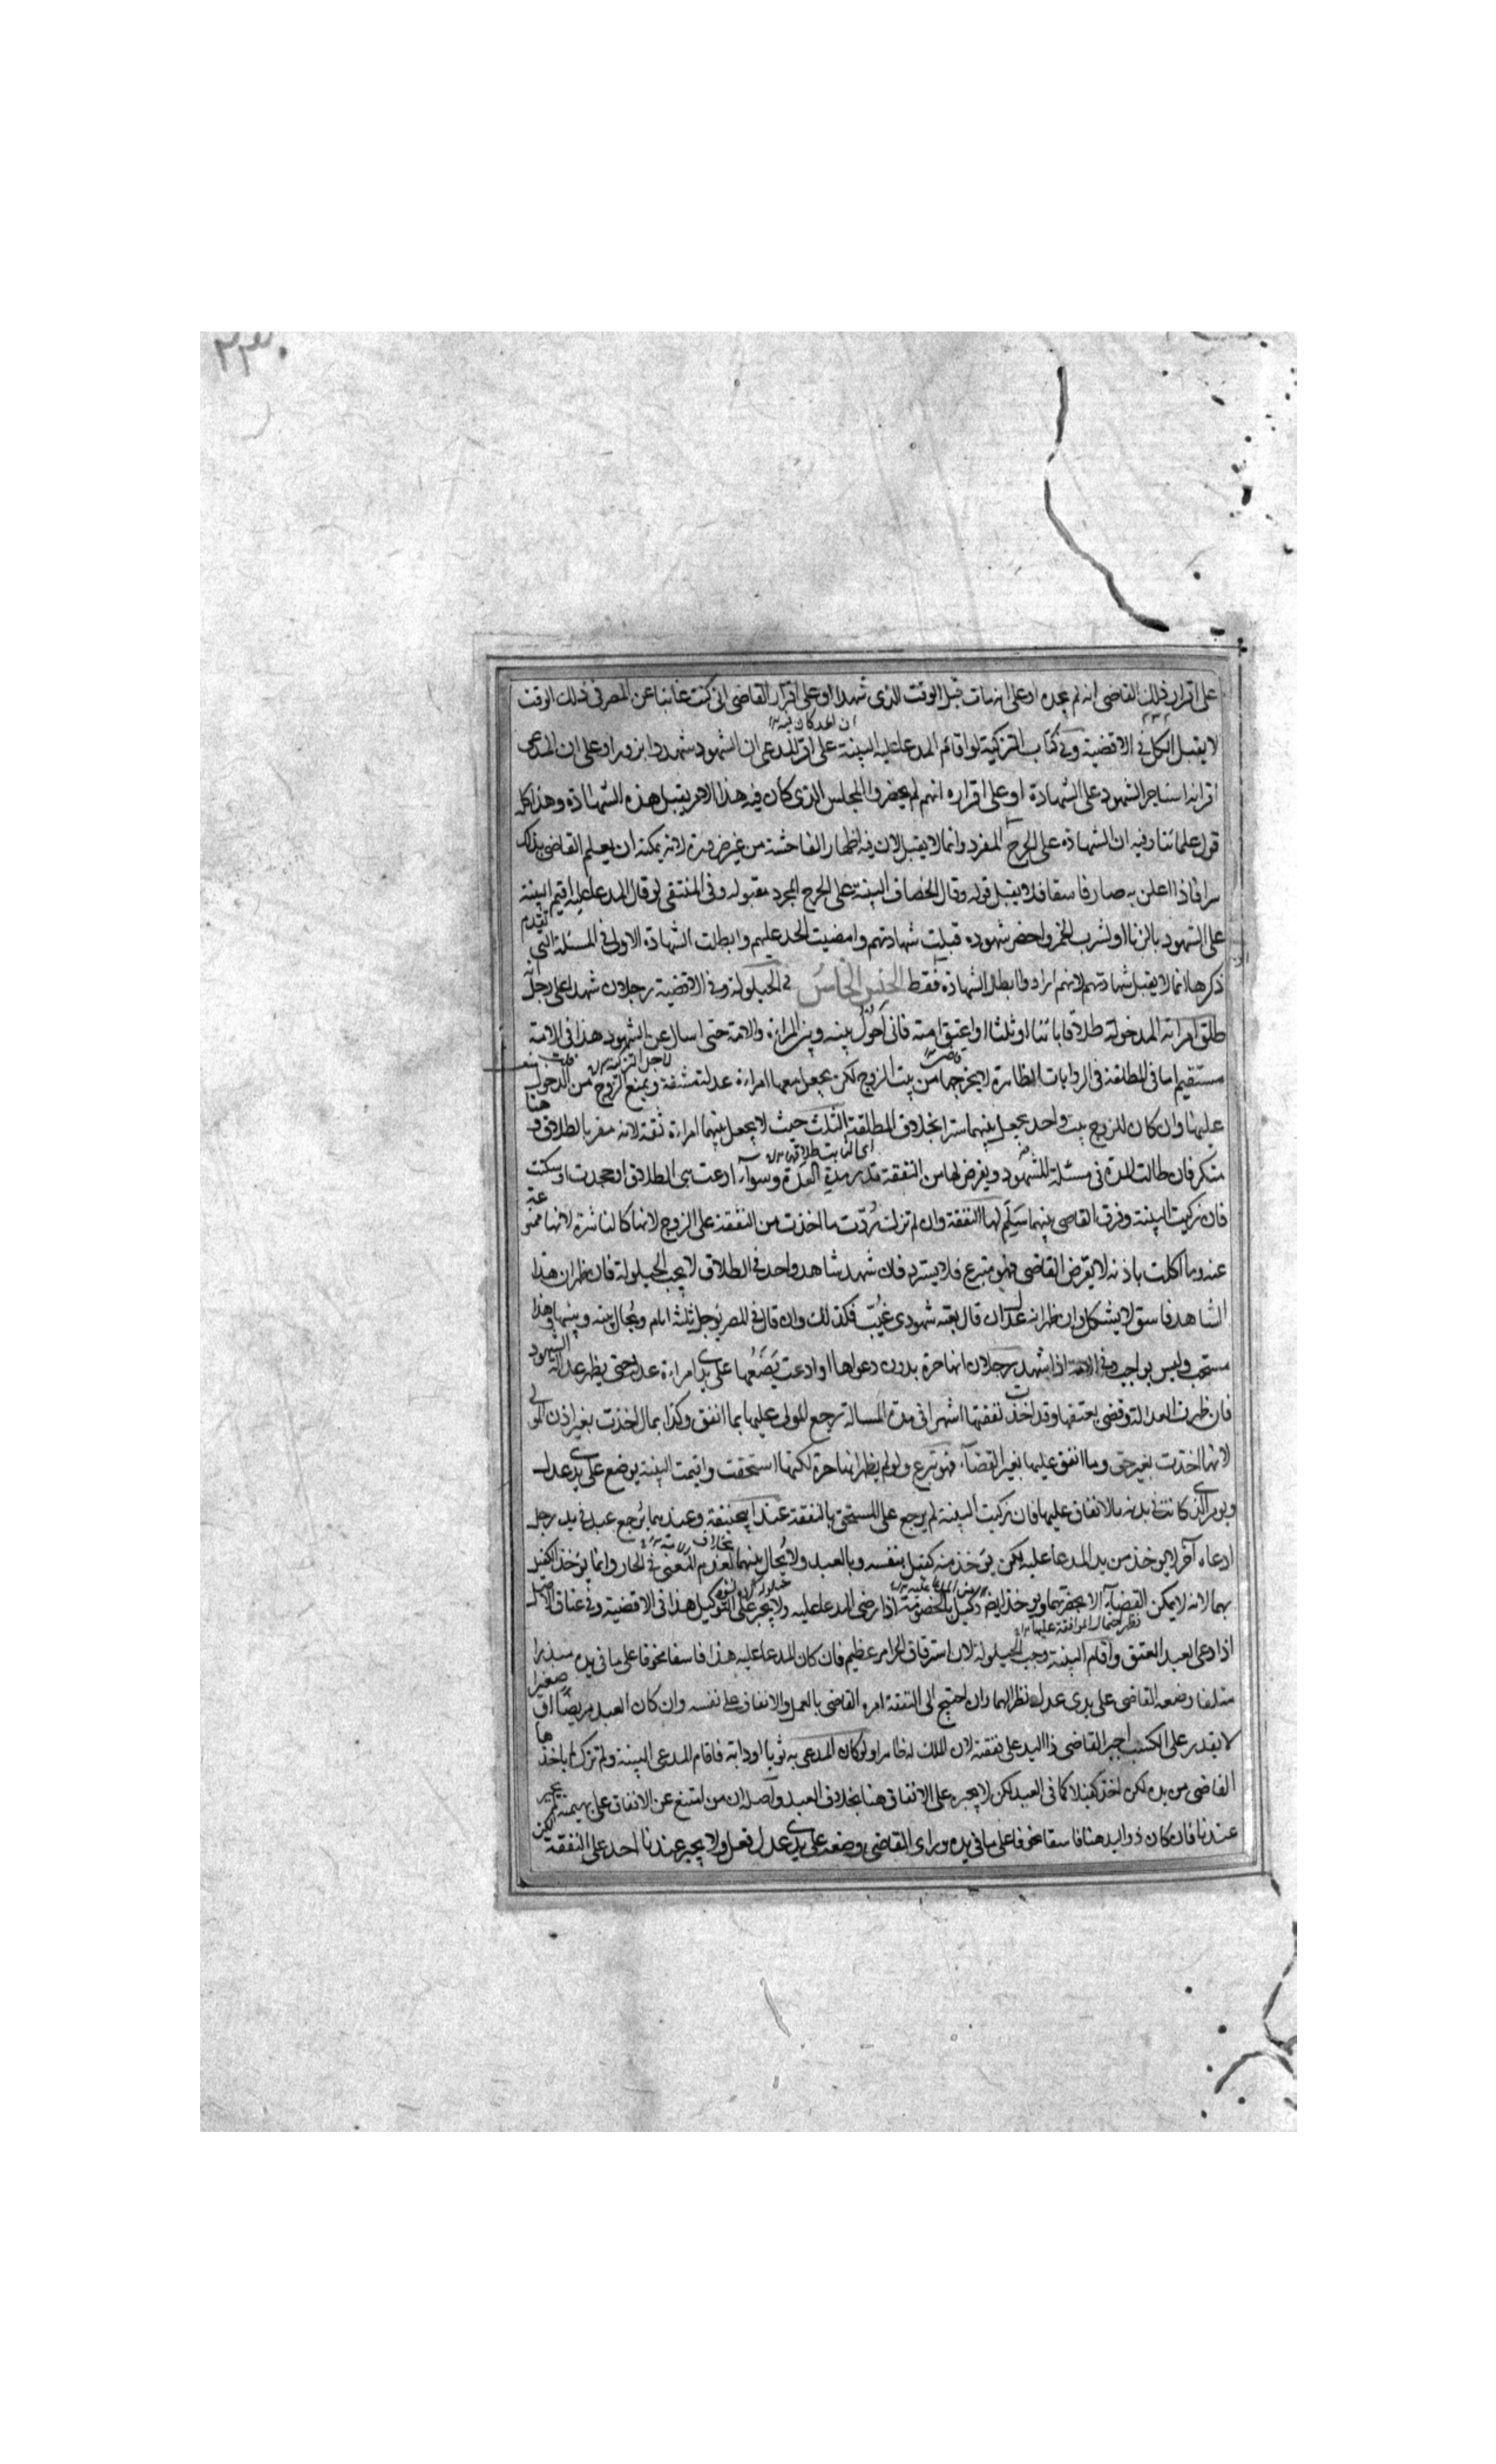 ٢٣٠
على اقرار ذلك القاضى انه لم يجده او على انه مات قبل الوقت الذى شهدا او على اقرار القاضى انى كنت غائبا عن المصر فى ذلك الوقت
لا يقبل الكل فى الاقضية وفى كتاب التزكية لو اقام المدعا عليه البينة على اقرار المدعى ان الشهود شهدوا بزور او على ان المدعى
اقر انه استاجر الشهود على الشهادة او على اقراره انهم لم يحضروا المجلس الذى كان فيه هذا الامر يقبل هذه الشهادة وهذا كله
قول علمائنا وفيه ان الشهادة على الجرح المفرد وانما لا يقبل لان فيه اظهار الفاحشة من غير ضرورة لانه يمكنه ان يعلم القاضى بذلك
سرا فاذا اعلن به صار فاسقا فلا يقبل قوله وقال الخصاف البينة على الجرح المجرد مقبولة وفى المنتقى لو قال المدعا عليه اقيم البينة
على الشهود بالزنا او لشرب الخمر واحضر شهوده قبلت شهادتهم وامضيت الحد عليهم وابطلت الشهادة الاولى فى المسئلة التى تقدم
ذكرها انما لا يقبل شهادتهم لانهم ارادوا ابطال الشهادة فقط الجنس الخامس فى الحيلولة وفى الاقضية رجلان شهدا على رجل انه
طلق امراته المدخولة طلاقا بائنا او ثلثا او اعتق امته فانى احول بينه وبين المراءة والامة حتى اسال عن الشهود هذا فى الامة
مستقيم اما فى المطلقة فى الروايات الظاهرة لا يخرجها من بيت الزوج لكن يجعل معها امراءة عدلة مشفقة ويمنع الزوج من الدخول
عليها وان كان للزوج بيت واحد يجعل بينهما سترا بخلاف المطلقة الثلث حيث لا يجعل بينهما امراءة ثقة لانه مقر بالطلاق وهنا
منكر فان طالت المدة فى مسئلة الشهود ويفرض لها من النفقة قدر مدة العدة وسواء ادعت هى الطلاق او جحدت او سكتت
فان زكيت البينة وفرق القاضى بينهما سلم لها النفقة وان لم تزك ردت ما اخذت من النفقة على الزوج لانها كالناشزة لانها ممنوعة
عنه وما اكلت باذنه لا بفرض القاضى فهو متبرع فلا يسترد فان شهد شاهد واحد فى الطلاق لا يجب الحيلولة فان ظهر ان هذا
الشاهد فاسق لا يشكل وان ظهر انه عدل ان قال بقية شهودى غيب فكذلك وان قال فى المصر يؤجل ثلثة ايام ويحال بينه وبينها وهذا
مستحب وليس بواجب وفى الامة اذا شهد رجلان انها حرة بدون دعواها او ادعت يضعها على يدى امراءة عدلة حتى يظهر عدالة الشهود
فان ظهرت العدالة وقضى بعتقها وقد اخذت نفقتها اشهرا فى مدة المسالة رجع المولى عليها بما انفق وكذا بما اخذت بغير اذن المولى
لانها اخذت بغير حق وما انفق عليها بغير القضاء فهو تبرع ولو لم يظهر انها حرة لكنها استحقت واقيمت البينة يوضع على يدى عدل
ويؤمر الذى كانت فى يده بالانفاق عليها فان زكيت البينة لم يرجع على المستحق بالنفقة عند ابيحنيفة وعندهما يرجع عبد فى يد رجل
ادعاه آخر لا يوخذ من يد المدعا عليه لكن يؤخذ منه كفيل بنفسه وبالعبد ولا يحال بينهما لعدم المعنى فى الحال وانما يؤخذ الكفيل
بهما لانه لا يمكن القضاء الا بحضرتهما ويؤخذ ايضا وكيل بالخصومة اذا رضى المدعا عليه ولا يجبر على التوكيل هذا فى الاقضية وفى عتاق الاصل
اذا ادعى العبد العتق واقام البينة وجب الحيلولة لان استرقاق الحر امر عظيم فان كان المدعا عليه هذا فاسقا مخوفا على ما فى يده مبذرا
متلفا وضعه القاضى على يدى عدل نظرا لهما وان احتيج الى النفقة امره القاضى بالعمل والانفاق على نفسه وان كان العبد مريضا او صغيرا
لا يقدر على الكسب اجبر القاضى ذا اليد على نفقته لان الملك له ظاهرا ولو كان المدعى به ثوبا او دابة فاقام المدعى البينة ولم تزك لا ياخذها
القاضى من يده لكن اخذ كفيلا كما فى العبد لكن لا يجبره على الانفاق هنا بخلاف العبد واصله ان من امتنع عن الانفاق على بهيمته لم يجبر
عندنا فان كان ذو اليد هنا فاسقا مخوفا على ما فى يده وراى القاضى وضعه على يدى عدل فعل ولا يجبر عندنا احد على النفقة لكن